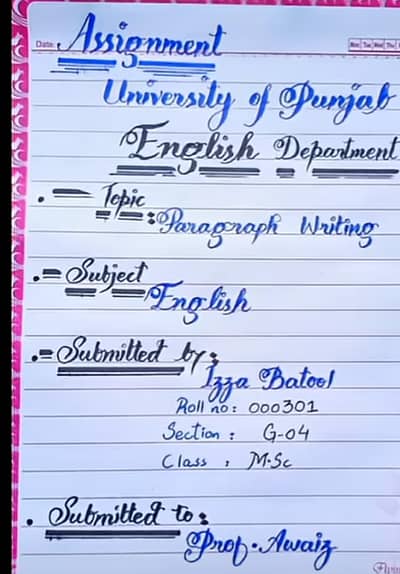 Date:
Mon Tue Wed Thu
Assignment
University of Punjab
English Department
Topic
:Paragraph Writing
Subject
English
Submitted by:
Izza Batool
Roll no: 000301
Section : G-04
Class : M.Sc
Submitted to:
Prof. Awaiz